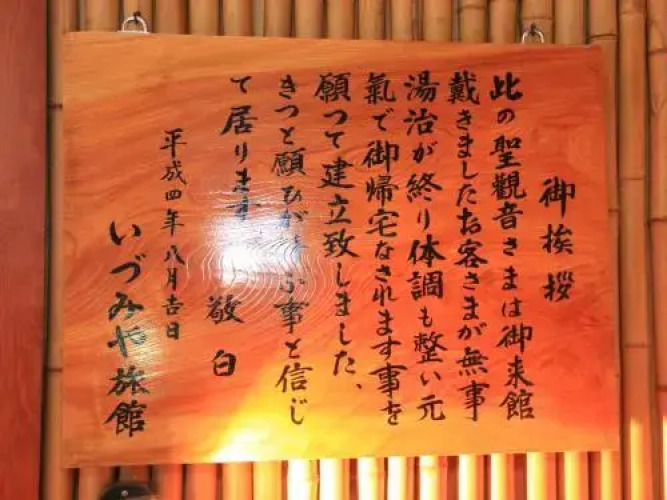 御挨拶
此の聖觀音さまは御来館
戴きましたお客さまが無事
湯治が終り体調も整い元
氣で御帰宅なされます事を
願って建立致しました、
きっと願ひが ふ事と信じ
て居ります
敬白
平成四年八月吉日
いづみや旅館